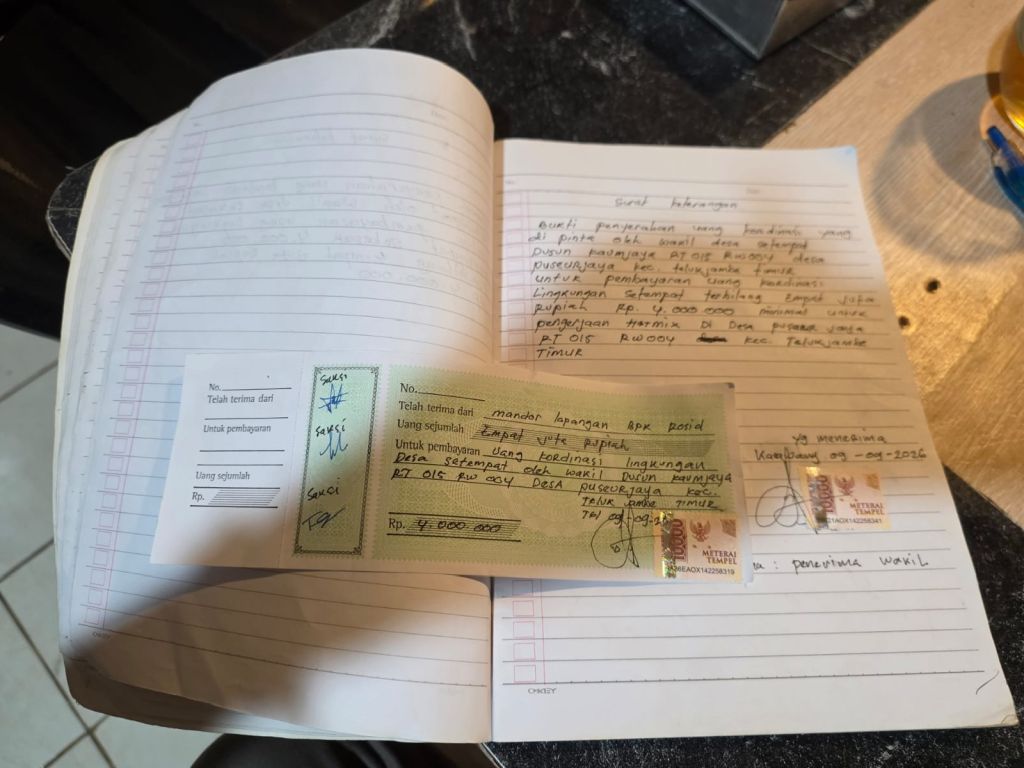 Surat keterangan
Bukti penyerahan uang kordinasi yang
di pinta oleh wakil desa setempat
Dusun kaumjaya RT 015 RW 004 desa
puseurjaya kec. telukjambe timur
untuk pembayaran uang kordinasi
Lingkungan setempat terbilang Empat juta
rupiah Rp. 4.000.000 minimal untuk
pengerjaan Hotmix DI Desa
RT 015 RW 004 kec. Telukjambe
TIMUR
yg menerima
09-09-2026
10000
METERAI
TEMPEL
penerima wakil
No.
Telah terima dari
Untuk pembayaran
Uang sejumlah
Rp.
Saksi
Saksi
Saksi
No.
Telah terima dari mandor lapangan Bpk Rosid
Uang sejumlah Empat jute Rupiah
Untuk pembayaran Uang kordinasi lingkungan
Desa setempat oleh wakil Dusun kaumjaya
RT 015 RW 004 DESA puseurjaya kec.
Teluk jambe TIMUR
09-09-
Rp. 4.000.000
10000
METERAI
TEMPEL
CMKEY